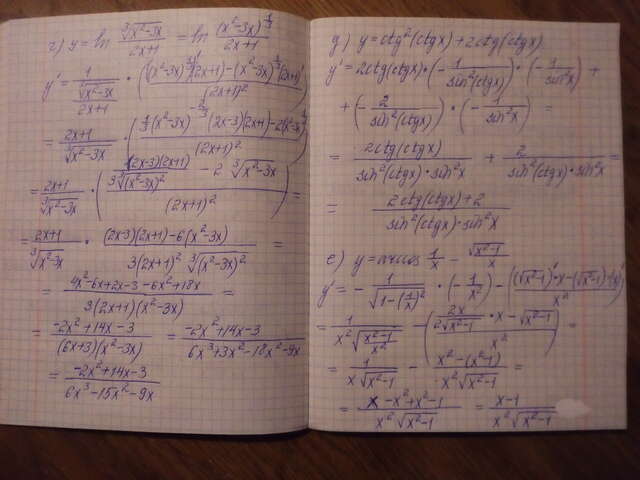 г) y = ln ∛(x²-3x)/(2x+1) = ln (x²-3x)^(1/3)/(2x+1)
y' = 1/(∛(x²-3x)/(2x+1)) · (((x²-3x)^(1/3))'(2x+1) - (x²-3x)^(1/3)(2x+1)')/(2x+1)² =
= (2x+1)/∛(x²-3x) · (1/3(x²-3x)^(-2/3) · (2x-3)(2x+1) - 2(x²-3x)^(1/3))/(2x+1)² =
= (2x+1)/∛(x²-3x) · ((2x-3)(2x+1)/(3∛(x²-3x)²) - 2∛(x²-3x))/(2x+1)² =
= (2x+1)/∛(x²-3x) · ((2x-3)(2x+1) - 6(x²-3x))/(3(2x+1)² ∛(x²-3x)²) =
= (4x²-6x+2x-3-6x²+18x)/(3(2x+1)(x²-3x)) =
= (-2x²+14x-3)/((6x+3)(x²-3x)) = (-2x²+14x-3)/(6x³+3x²-18x²-9x)
= (-2x²+14x-3)/(6x³-15x²-9x)
д) y = ctg²(ctgx) + 2ctg(ctgx)
y' = 2ctg(ctgx) · (-1/sin²(ctgx)) · (-1/sin²x) +
+ (-2/sin²(ctgx)) · (-1/sin²x) =
= 2ctg(ctgx)/(sin²(ctgx)·sin²x) + 2/(sin²(ctgx)·sin²x) =
= (2ctg(ctgx)+2)/(sin²(ctgx)·sin²x)
е) y = arccos 1/x - √(x²-1)/x
y' = -1/√(1-(1/x)²) · (-1/x²) - ((√(x²-1))'·x - (√(x²-1))·(x)')/x² =
= 1/(x²√((x²-1)/x²)) - ((2x/(2√(x²-1)) · x - √(x²-1))/x²) =
= 1/(x√(x²-1)) - (x²-(x²-1))/(x²√(x²-1)) =
= (x-x²+x²-1)/(x²√(x²-1)) = (x-1)/(x²√(x²-1))